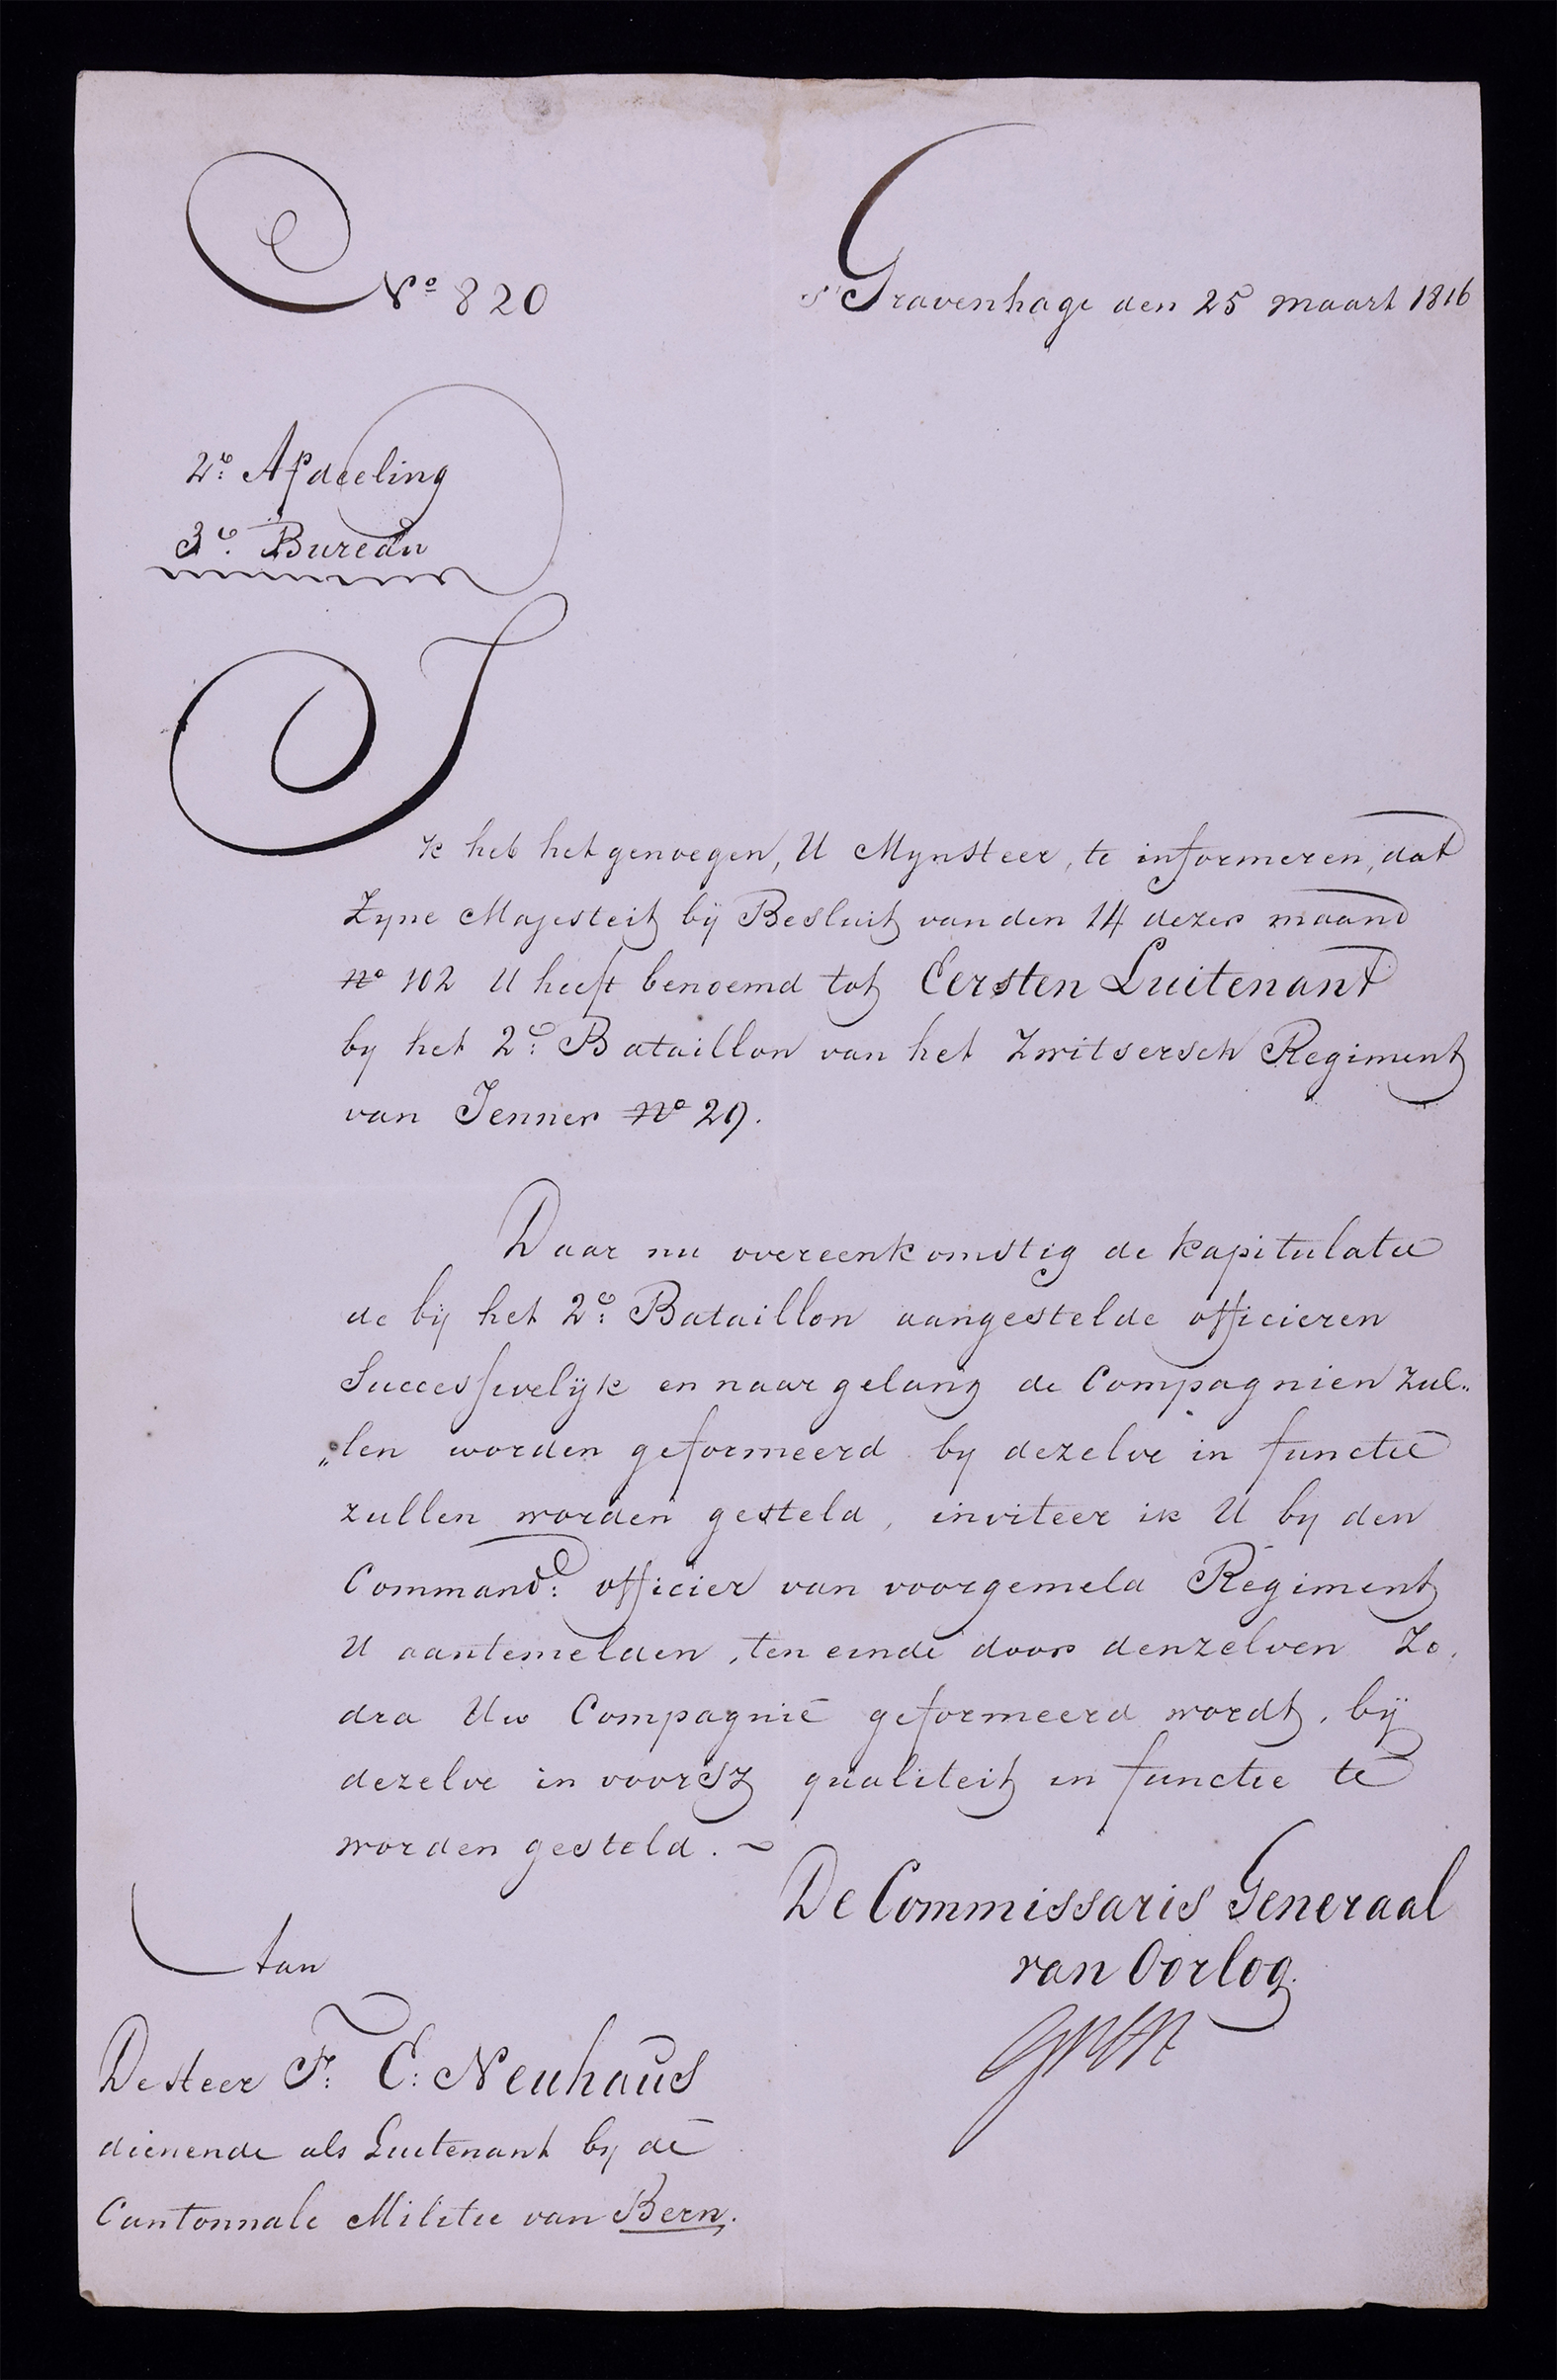 No 820
s'Gravenhage den 25 maart 1816
2e Afdeeling
3e Bureau
Ik heb het genoegen, U Mynheer, te informeren, dat
Zyne Majesteit bij Besluit van den 14 dezer maand
No 102 U heeft benoemd tot Eersten Luitenant
by het 2e Bataillon van het Zwitsersch Regiment
van Jenner No 29.
Daar nu overeenkomstig de kapitulatie
de bij het 2e Bataillon aangestelde officieren
Successivelijk en naar gelang de Compagnien zul„
„len worden geformeerd by dezelve in functie
zullen worden gesteld, inviteer ik U by den
Command: officier van voorgemeld Regiment
U aantemelden, ten einde door denzelven Zo
dra Uw Compagnie geformeerd wordt, bij
dezelve in voorsz qualiteit in functie te
worden gesteld.
De Commissaris Generaal
van Oorlog.
Aan
De Heer F: E: Neuhaus
dienende als Luitenant by de
Cantonnale Militie van Bern.